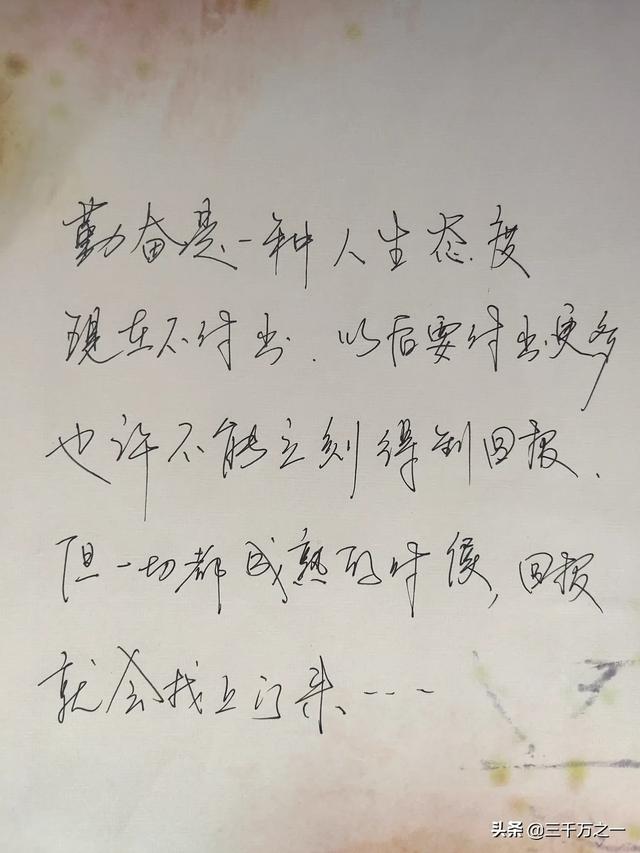 勤奋是一种人生态度
现在不付出.以后要付出更多
也许不能立刻得到回报.
但一切都成熟的时候,回报
就会找上门来、---
头条 @三千万之一